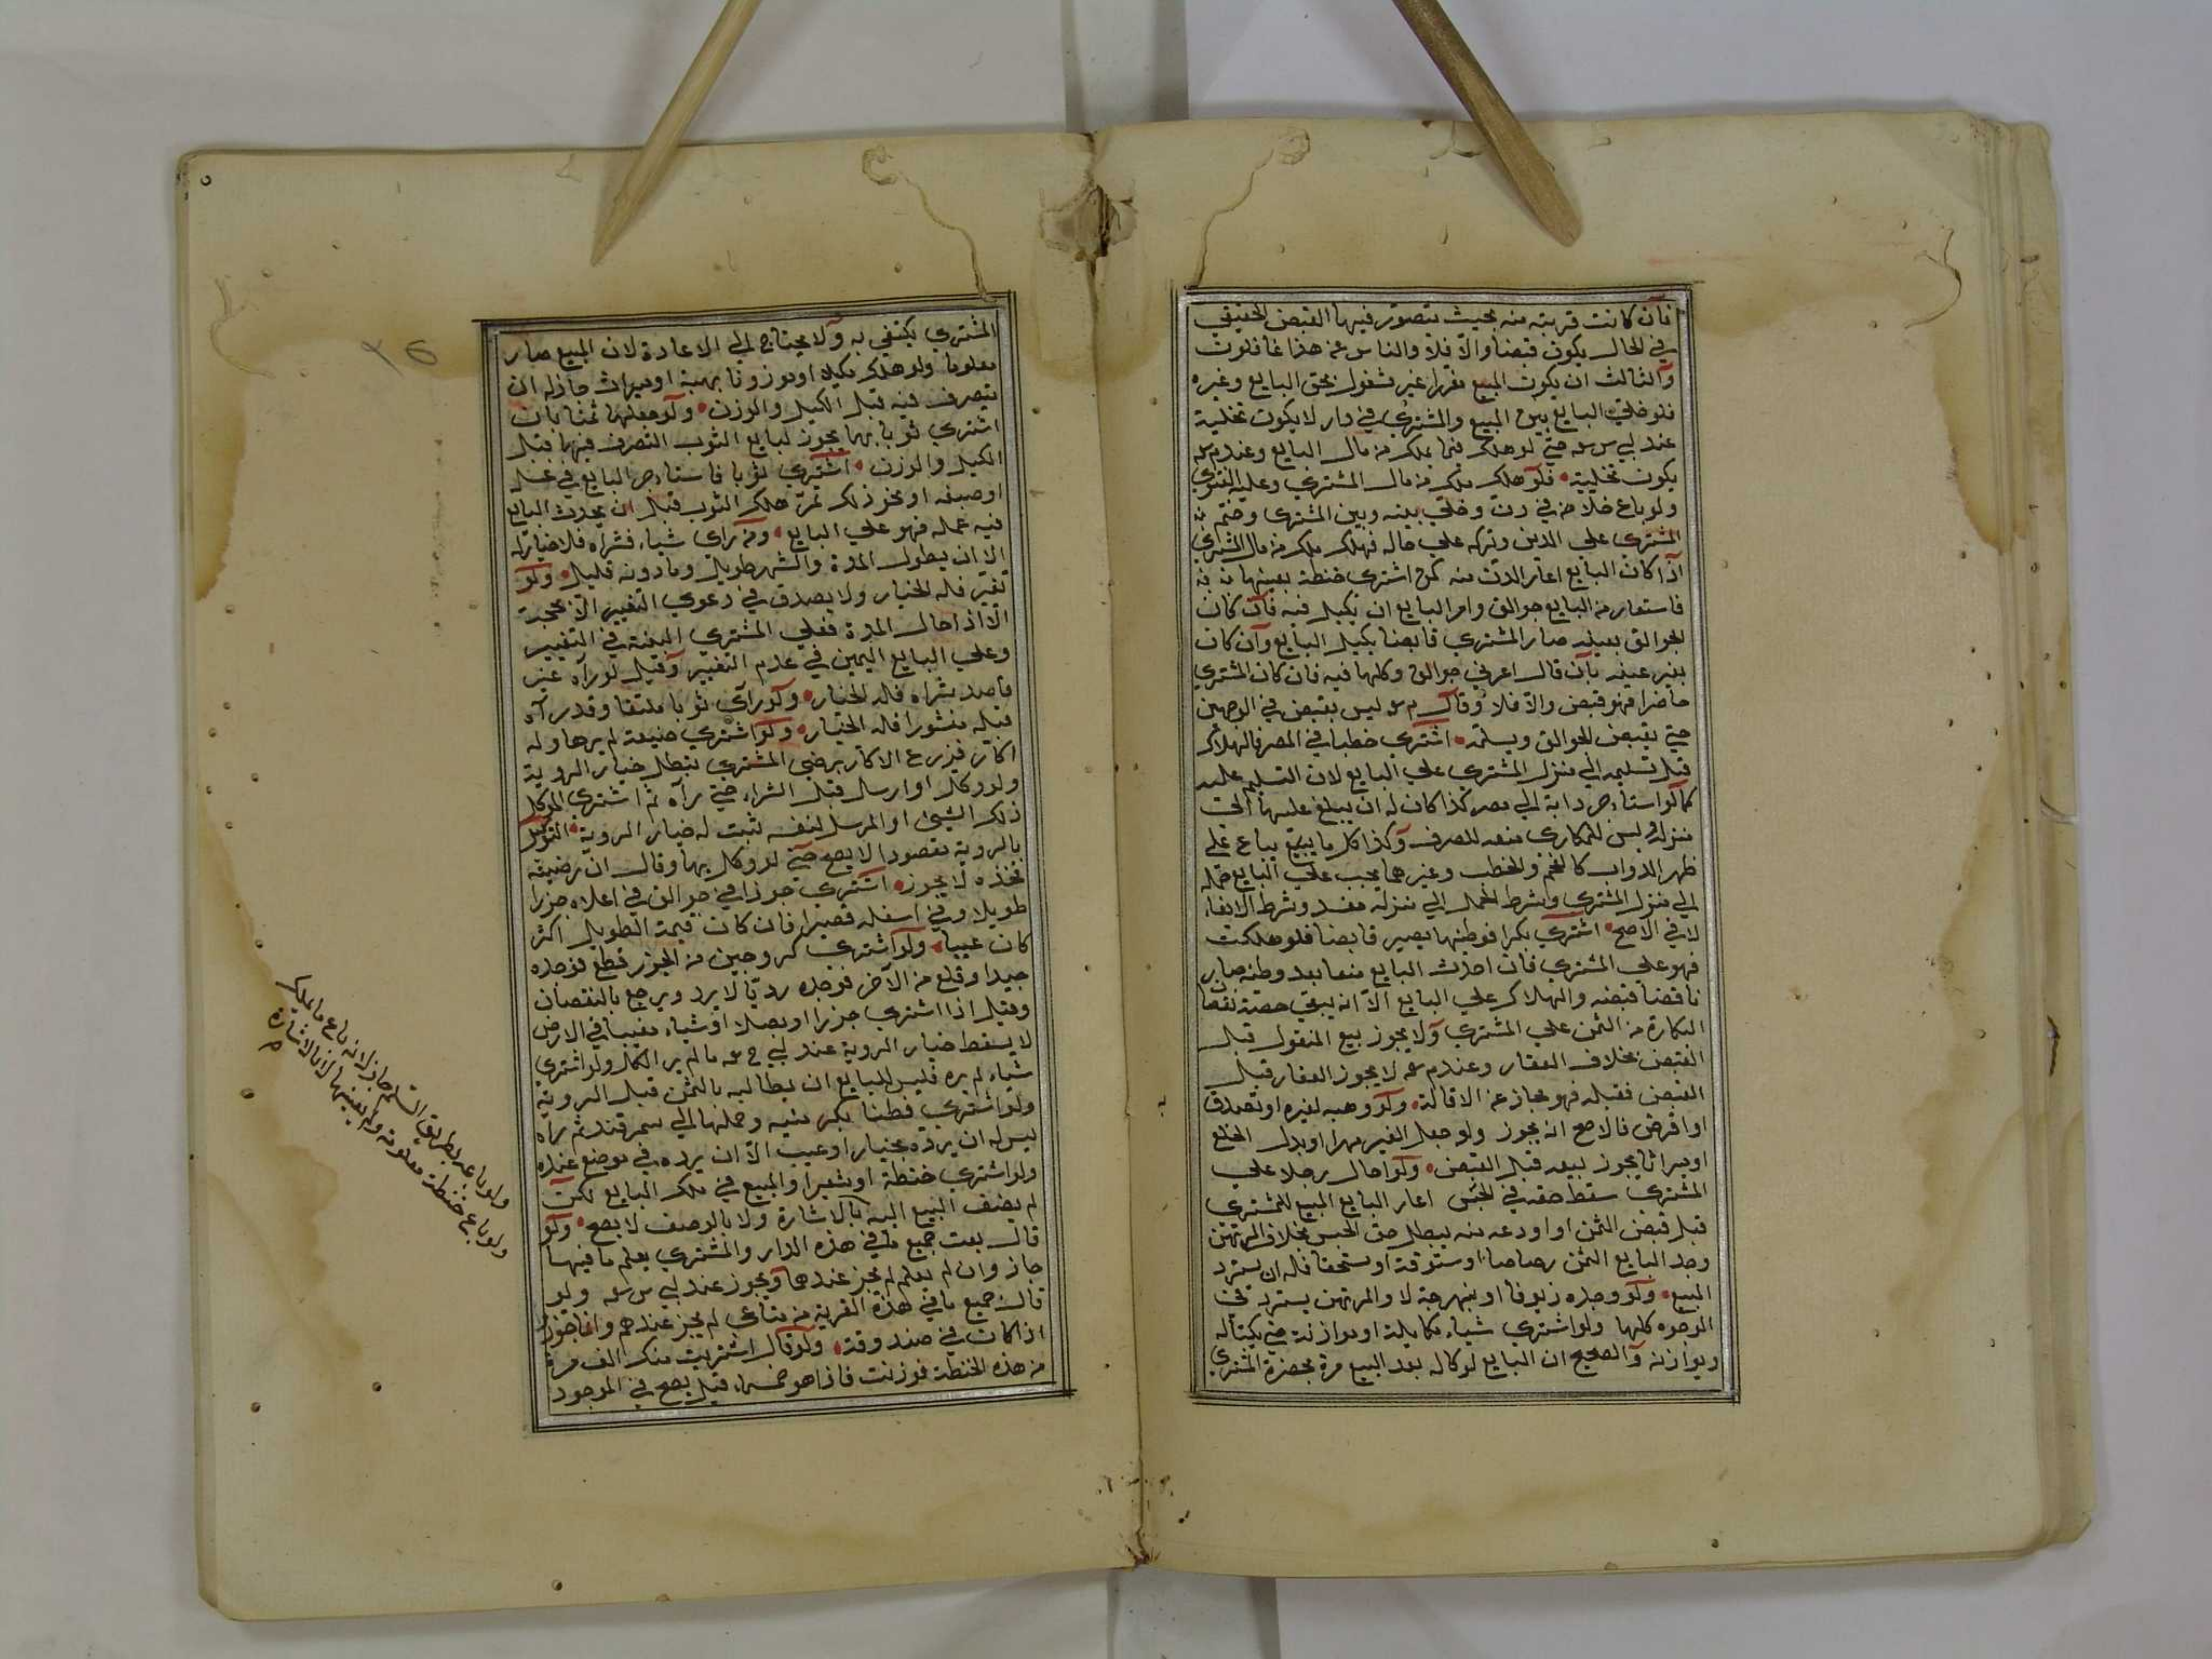 فان كانت قريبة منه بحيث يتصور فيها القبض الحقيقي
في الحال يكون قبضا والا فلا والناس عن هذا غافلون
والثالث ان يكون المبيع مفرزا غير مشغول بحق البايع وغيره
فلو خلى البايع بين المبيع والمشتري في دار لا يكون تخلية
عند ابي س سه حتى لو هلك فيها يهلك من مال البايع وعند م سه
يكون تخلية فلو هلك يهلك من مال المشتري وعليه الفتوى
ولو باع خلا من في دن وخلى بينه وبين المشتري وختم
المشتري على الدن وتركه على حاله فهلك يهلك من مال المشتري
اذا كان البايع اعار الدن منه كمن اشترى حنطة بعينها
فاستعار من البايع جوالق وامر البايع ان يكيل فيه فان كان
الجوالق بعينه صار المشتري قابضا بكيل البايع وان كان
بغير عينه بان قال اعرني جوالق وكلها فيه فان كان المشتري
حاضرا فهو قبض والا فلا وقال م سه ليس بقبض في الوجهين
حتى يقبض الجوالق ويسلمه اشترى حطبا في المصر فالهلاك
قبل تسليمه الى منزل المشتري على البايع لان التسليم عليه
كما لو استاءجر دابة الى مصر كذا كان له ان يبلغ عليها الى
منزله وليس للمكاري منعه للعرف وكذا كل ما يبيع يباع على
ظهر الدواب كالفحم والحطب وغيرهما يجب على البايع حمله
الى منزل المشتري وشرط الحمل الى منزله مفسد وشرط الايفاء
لا في الاصح اشترى بكرا فوطئها يصير قابضا فلو هلكت
فهو على المشتري فان احدث البايع منعا بعد وطئه صار
ناقضا قبضه والهلاك على البايع الا انه يبقى حصة نقصان
البكارة من الثمن على المشتري ولا يجوز بيع المنقول قبل
القبض بخلاف العقار وعند م سه لا يجوز العقار قبل
القبض فقبله فهو مجاز عن الاقالة ولو وهبه لغيره او تصدق
او اقرض فالاصح انه يجوز ولو جعل الغير مهرا او بدل الخلع
او ميراثا يجوز بيعه قبل القبض ولو احال رجلا على
المشتري سقط حقه في الحبس اعار البايع المبيع للمشتري
قبل قبض الثمن او اودعه منه يبطل حق الحبس بخلاف المرتهن
وجد البايع الثمن رصاصا او ستوقة او مستحقا فله ان يسترد
المبيع ولو وجده زيوفا او نبهرجة لا والمرتهن يسترد في
الوجوه كلها ولو اشترى شياء مكايلة او موازنة حتى يكتاله
ويوازنه والصحيح ان البايع لو كاله بعد البيع مرة بحضرة المشتري
المشتري يكتفي به ولا يحتاج الى الاعادة لان المبيع صار
معلوما ولو هلك مكيلا او موزونا بهبة او ميراث جاز له ان
يتصرف فيه قبل الكيل والوزن ولو جعلها ثمنا بان
اشترى ثوبا بها يجوز لبايع الثوب التصرف فيها قبل
الكيل والوزن اشترى ثوبا فاستاءجر البايع في غسله
او صبغه او نحو ذلك ثم هلك الثوب قبل ان يحدث البايع
فيه عمله فهو على البايع ومن راى شياء فشراه فلا خيار له
الا ان يطول المدة والشهر طويل وما دونه قليل ولو
تغير فله الخيار ولا يصدق في دعوى التغيير الا بحجة
الا اذا طال المدة فعلى المشتري البينة في التغيير
وعلى البايع اليمين في عدم التغيير وقيل لو رآه غير
قاصد شراه فله الخيار ولو راى ثوبا ملتفا وقد رآه
قبله منشورا فله الخيار ولو اشترى ضيعة لم يرها وله
اكار فزرع الاكار برضى المشتري يبطل خيار الروية
ولو وكل او ارسل قبل الشراء حتى رآه ثم اشترى الموكل
ذلك الشيئ او المرسل لنفسه ثبت له خيار الروية التوكيل
بالروية مقصودا لا يصح حتى لو وكل بها وقال ان رضيته
فخذه لا يجوز اشترى جوزا في جوالق في اعلاه جزرا
طويلا وفي اسفله قصيرا فان كان قيمة الطويل اكثر
كان عيبا ولو اشترى كروجين من الجزر فقلع فوجده
جيدا وقلع من الآخر فوجده رديا لا يرد ويرجع بالنقصان
وقيل اذا اشترى جزرا او بصلا او شياء مغيبا في الارض
لا يسقط خيار الروية عند ابي ح سه ما لم ير الكل ولو اشترى
شياء لم يره فليس للبايع ان يطالبه بالثمن قبل الروية
ولو اشترى قطنا وحملها الى سمرقند ثم رآه
ليس له ان يرده بخيار او عيب الا ان يرده في موضع عقده
ولو اشترى حنطة او شعيرا والمبيع في ملك البايع لكن
لم يضف البيع اليه بالاشارة ولا بالوصف لا يصح ولو
قال بعت جميع ما في هذه الدار والمشتري يعلم ما فيها
جاز وان لم يعلم لم يجز عندهما ويجوز عند ابي س سه ولو
قال جميع ما في هذه القرية من متاعي لم يجز عندهم وانما يجوز
اذا كان في صندوقه ولو قال اشتريت منك الف من
من هذه الحنطة فوزنت فاذا هو خمساء قيل يصح في الموجود
ولو باعه بطريق السلم جاز لانه باع ما يملك
ولو باع حنطة معلومة ولم يعينها لا بالاشارة